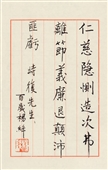 仁慈隱惻造次弗
離節義廉退顛沛
匪虧
時傑先生
百歲楊晫